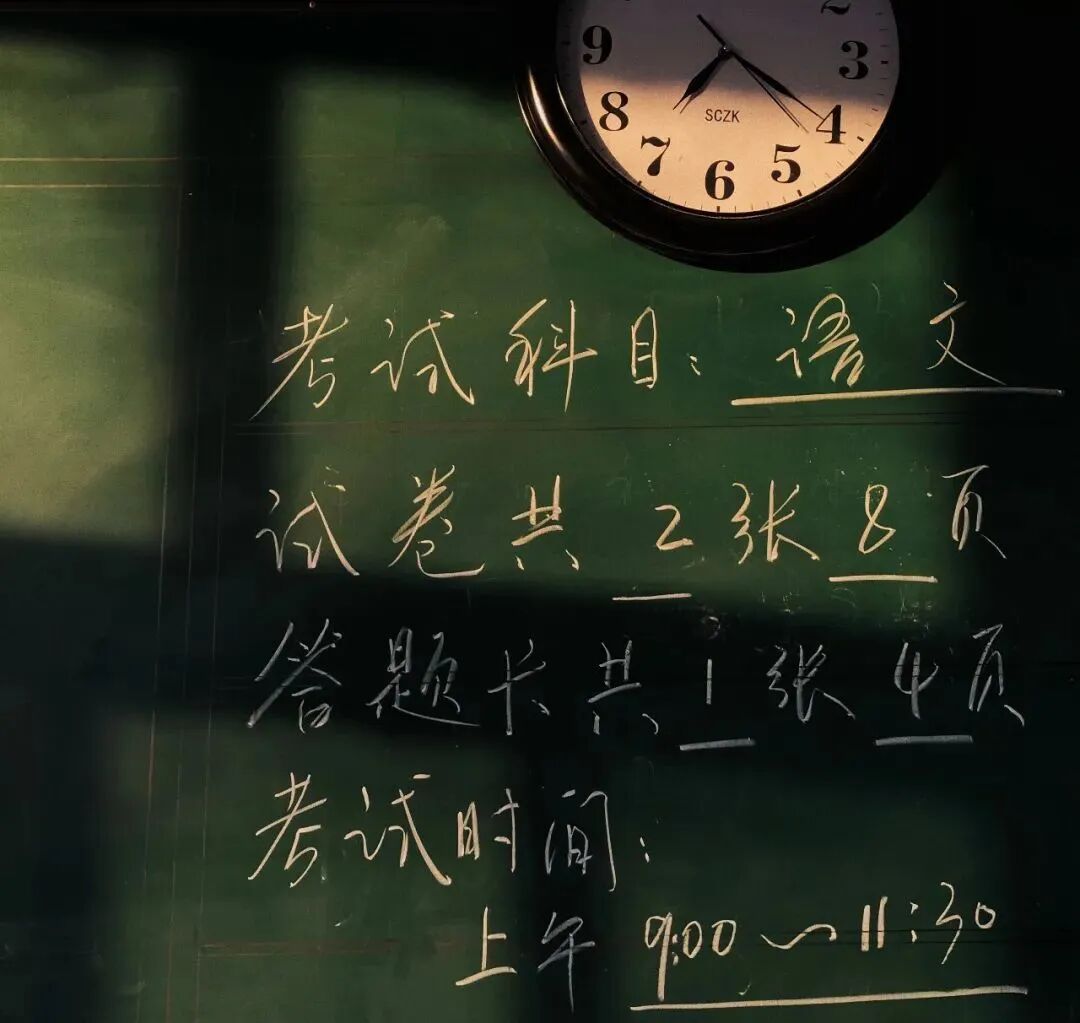 9 2
8 3
7 6 5 4
SCZK
考试科目:语文
试卷共2张8页
答题卡共1张4页
考试时间:
上午 9:00~11:30